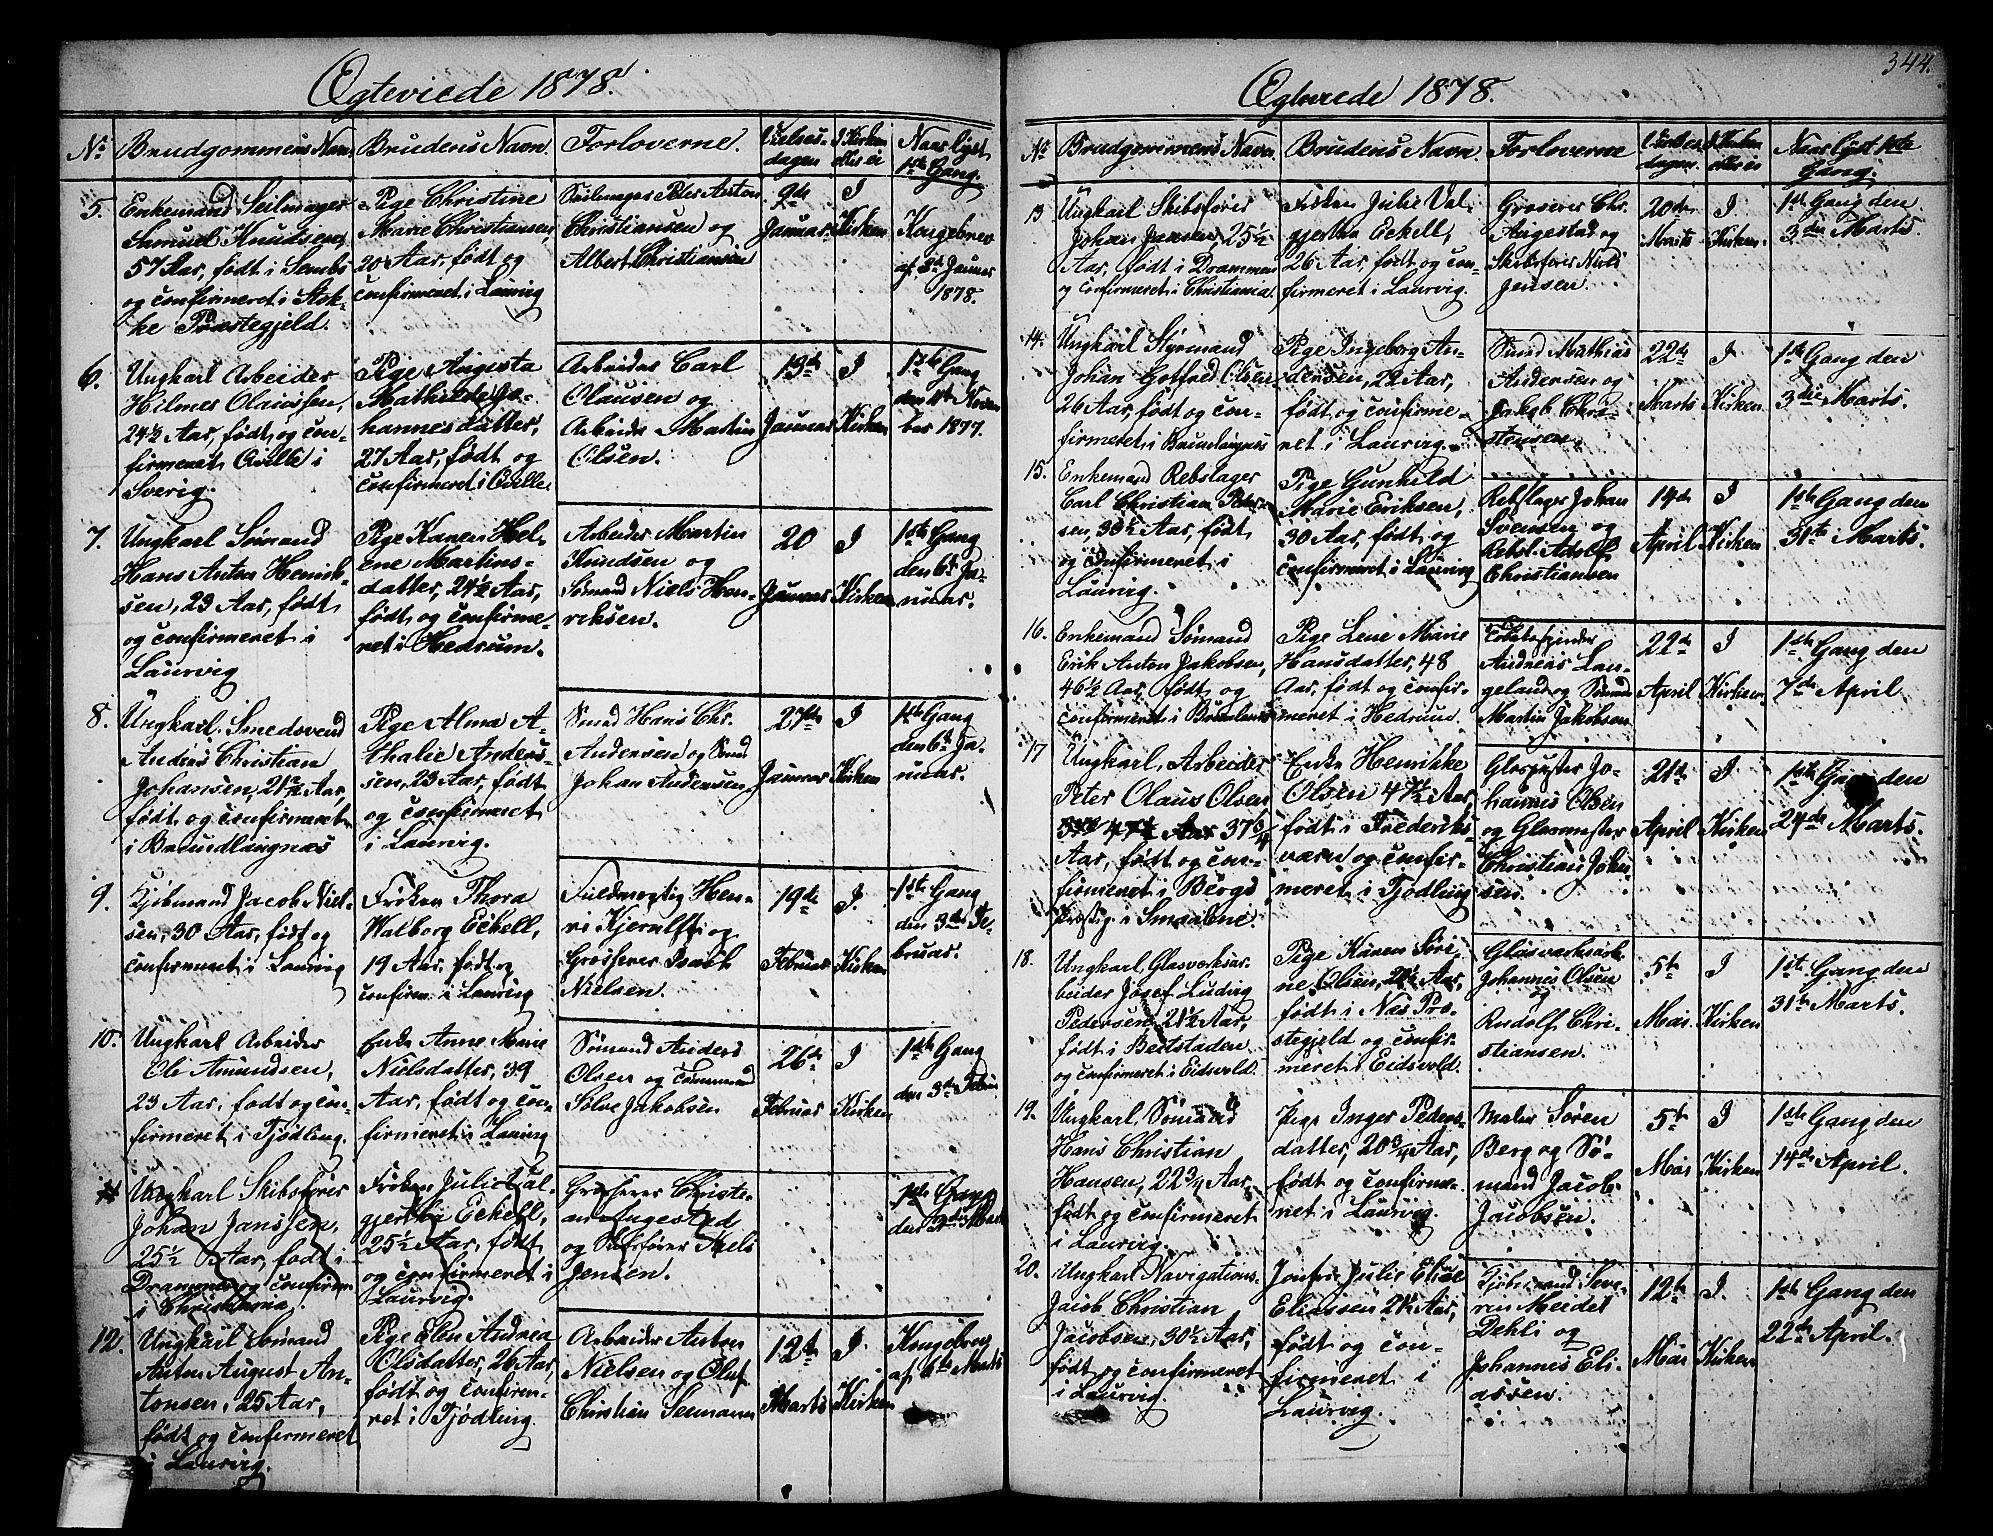 Ægteviede 1878.
No
Brudgommens Navn
Brudens Navn.
Forloverne.
Vielses-
dagen
I Kirken
eller ei
Naar lyst
1ste Gang.
5.
Enkemand Seilmager
Samuel Knudsen,
57 Aar, født i Sembs
og confirmeret i Stok-
ke Præstegjeld.
Pige Christine
Marie Christiansen,
20 Aar, født og
confirmeret i Laurvig
Seilmager Peter Anton
Christiansen og
Albert Christiansen
9de
Januar
I
Kirken
Kongebrev
af 3d Januar
1878.
6.
Ungkarl Arbeider
Hilmer Olaussen,
24½ Aar, født og con-
firmeret Qville i
Sverig.
Pige Augusta
Mathilde Jo-
hannesdatter,
27 Aar, født og
confirmeret i Qville
Arbeider Carl
Clausen og
Arbeider Martin
Olsen.
13de
Januar
I
Kirken
1ste Gang
den 11te Novem
ber 1877.
7.
Ungkarl Sømand
Hans Anton Henrik-
sen, 23 Aar, født
og confirmeret i
Laurvig
Pige Karen Hel-
ene Martins-
datter, 24½ Aar,
født og confirme-
ret i Hedrum.
Arbeider Martin
Knudsen og
Sømand Niels Hen-
riksen.
20
Januar
I
Kirken
1ste Gang
den 6te Ja-
nuar.
8.
Ungkarl Smedsvend
Anders Christian
Johansen, 21½ Aar,
født og confirmeret
i Brundlangnæs
Pige Alma A-
thalie Anders-
sen, 23 Aar, født
og confirmeret
i Laurvig.
Smed Hans Chr.
Andersen og Smed
Johan Andersen
27de
Januar
I
Kirken
1ste Gang
den 6te Ja-
nuar.
9.
Kjøbmand Jacob Niel-
sen, 30 Aar, født og
confirmeret i Laurvig
Frøken Thora
Walborg Eckell,
19 Aar, født og
confirm. i Laurvig
Fuldmægtig Hen-
ri Kjerulff og
Grosserer Isach
Nielsen.
19de
Februar
I
Kirken
1ste Gang
den 3die Fe-
bruar.
10.
Ungkarl Arbeider
Ole Amundsen,
23 Aar, født og con-
firmeret i Tjødling.
Enke Anne Marie
Nielsdatter, 39
Aar, født og con-
firmeret i Laurvig
Sømand Anders
Olsen og Tømmermand
Sølve Jakobsen
26de
Februar
I
Kirken
1ste Gang
den 3die Febru
11
Ungkarl Skibsfører
Johan Janssen,
25½ Aar, født i
Drammen og confirm
i Christiania.
Frøken Julie Val-
gjertha Eckell,
25½ Aar, født
og confirmeret i
Laurvig.
Grosserer Christi-
an Angestad
og Skibsfører Niels
Jensen.
1ste Gang
den 3die Marts
12.
Ungkarl Sømand
Anton August An-
tonsen, 25 Aar,
født og confirmeret
i Laurvig.
Pige Elen Andrea
Olsdatter, 26 Aar,
født og confirme-
ret i Tjødling.
Arbeider Anton
Nielsen og Oluf
Christian Seemann
12te
Marts
I
Kirken
Kongebrev
af 6te Marts
344.
Ægteviede 1878.
No
Brudgommens Navn
Brudens Navn.
Forloverne
Vielses
dagen.
I Kirken
eller ei
Naar lyst 1ste
Gang.
13
Ungkarl Skibsfører
Johan Jansen, 25½
Aar, født i Drammen
og confirmeret i Christiania.
Frøken Julie Val-
gjertha Eckell,
26 Aar, født og con-
firmeret i Laurvig.
Grosserer Chr.
Angestad og
Skibsfører Niels
Jensen.
20de
Marts
I
Kirken.
1ste Gang den
3die Marts.
14.
Ungkarl Styrmand
Johan Gotfred Olsen
26 Aar, født og con-
firmeret i Brundlangnæs
Pige Ingeborg An-
dersen, 22 Aar,
født og confirme-
ret i Laurvig.
Smed Mathias
Andersen og
Jakob Chri-
stensen.
22de
Marts
I
Kirken.
1ste Gang den
3die Marts.
15.
Enkemand Rebslager
Carl Christian Peter-
sen, 33½ Aar, født
og confirmeret i
Laurvig.
Pige Gunhild
Marie Eriksen,
30 Aar, født og
confirmeret i Laurvig
Rebslager Johan
Svensen og
Rebsl. Adolf
Christiansen
14de
April
I
Kirken
1ste Gang den
31te Marts.
16.
Enkemand Sømand
Erik Anton Jakobsen,
46½ Aar, født og
confirmeret i Brunlanæs
Pige Lene Marie
Hansdatter, 48
Aar, født og confir-
meret i Hedrum.
Andreas Lan-
geland og Sømand
Martin Jakobsen
22de
April
I
Kirken
1ste Gang den
7de April
17
Ungkarl, Arbeider
Peter Olaus Olsen
37¾
Aar, født og con-
firmeret i Bergs
Præstg. i Smaalene.
Enke Henrikke
Olsen 47½ Aar,
født i Frederiks-
værn og confir-
meret i Tjødling
Glaspuster Jo-
hannes Olsen
og Glasmester
Christian Johan
sen.
21de
April
I
Kirken
1ste Gang den
24de Marts.
18.
Ungkarl Glasverksar-
beider Josef Ludvig
Pedersen, 21½ Aar,
født i Beitstaden
og confirmeret i Eidsvold.
Pige Karen Søri-
ne Olsen, 21½ Aar,
født i Næs Præ-
stegjeld og confir-
meret i Eidsvold.
Glasværksarb.
Johannes Olsen
og
Rudolf Chri-
stiansen.
5te
Mai.
I
Kirken
1ste Gang den
31te Marts.
19.
Ungkarl, Sømand
Hans Christian
Hansen, 22¾ Aar,
født og confirmeret
i Laurvig.
Pige Inger Peders-
datter, 20¾ Aar,
født og confirme-
ret i Laurvig.
Maler Søren
Berg og Sø-
mand Jacob
Jacobsen.
5te
Mai
I
Kirken
1ste Gang den
14de April.
20.
Ungkarl Navigations.
Jacob Christian
Jacobsen, 30½ Aar,
født og confirmeret
i Laurvig.
Jomfru Julie Elise
Eliassen 21½ Aar,
født og con-
firmeret i
Laurvig.
Kjøbmand Seve-
ren Meidel
Dehli og
Johannes Eli-
assen.
12te
Mai
I.
Kirken
1ste Gang den
22de April.